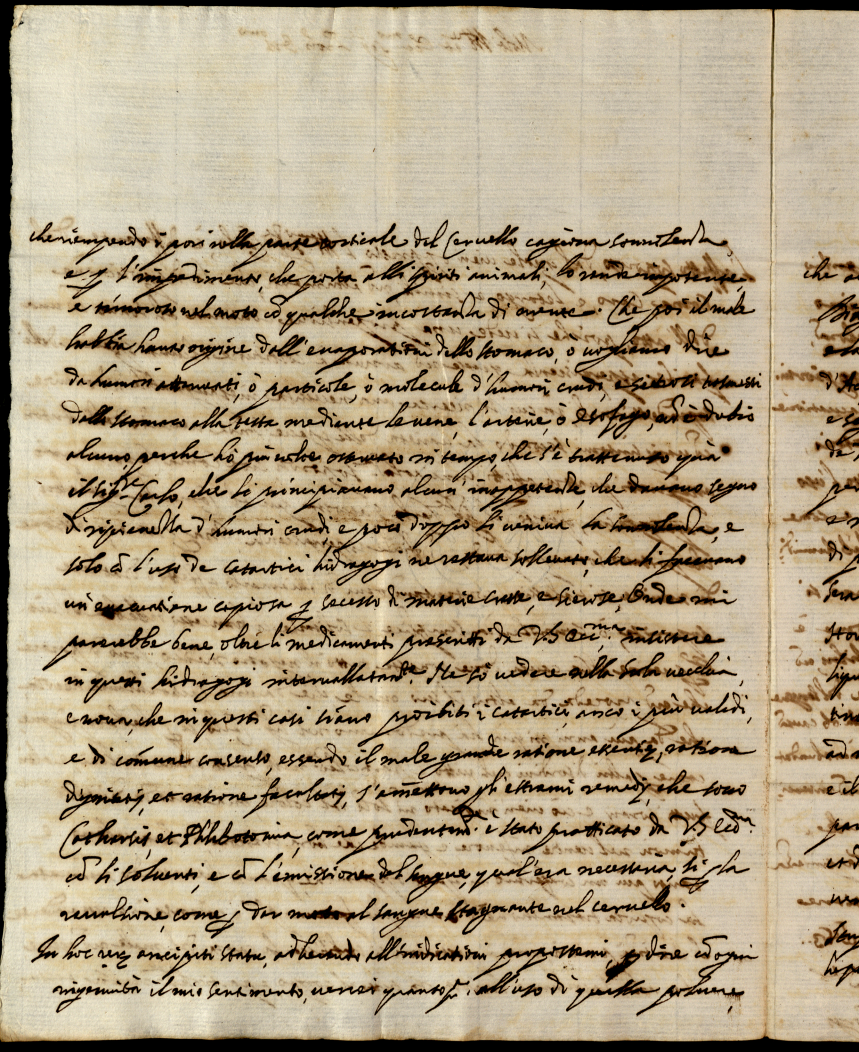 che riempendo i pori nella parte corticale del Cervello cagiona sonnolenza,
e p l'impedimento, che porta alli spiriti animali, lo rende impotente,
e timoroso nel moto cō qualche incostanza di mente. Che poi il male
habbia hauto origine dall'euaporationi dello stomaco, ò uogliamo dire
da humori attenuati, ò particole, ò molecule d'humori crudi, e sierosi trasmessi
dallo stomaco alla testa mediante le uene, l'arterie, ò Esofago, nō è dubio
alcuno, perche hò più uolte osseruato in tempo, che s'è trattenuto quà
il Sigr Carlo, che li principiauano alcun' inappetenze, che dauano segno
di ripienezza d'humori crudi, e poco doppo li ueniua la sonnolenza, e
solo cō l'uso de catartici hidragogi ne restaua solleuato, che li faceuano
un'euacuatione copiosa p secesso di materie crasse, e sierose, Onde mi
parerebbe bene, oltre li medicamenti prescritti da V.S. Eccma insistere
in questi hidragogi interuallatamte. Ne sò uedere nella scola uecchia,
e noua, che in questi casi siano proibiti i catartici, anco i più ualidi,
e di comune consenso, essendo il male grande ratione essentiȩ, ratione
dignitatis, et ratione facultatis, s'amettono gl'estremi remedij, che sono
Catharsis, et Phlebotomia, come prudentemte è stato pratticato da V.S. Eccma
cō li soluenti, e cō l'emissione del sangue, qual'era necessaria, si p la
reuulsione, come p dar moto al sangue stagnante nel ceruello.
In hoc ancipiti statu, adherendo all'indicationi propostemi, p dire cō ogni
ingenuità il mio sentimento, uerrei quanto pa all'uso di quella poluere,